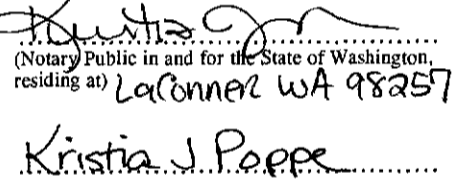 Kristia
(Notary Public in and for the State of Washington,
residing at) LaConner WA 98257
Kristia J Poppe